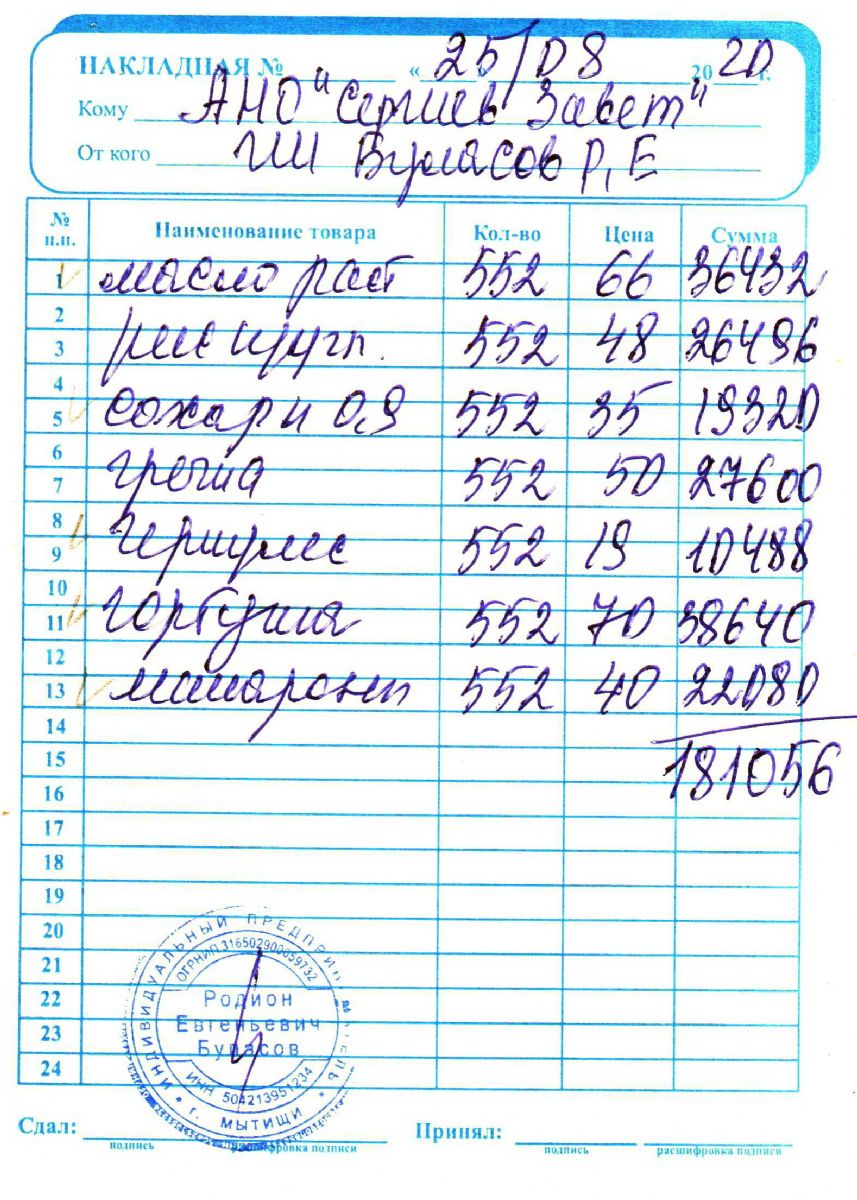 НАКЛАДНАЯ № « 25/08 2020 г.
Кому АНО "Сергиев Завет"
От кого ИП Буласов Р, Е
№ п.п. Наименование товара Кол-во Цена Сумма
1 масло раст 552 66 36432
2
3 рис кругл. 552 48 26496
4
5 сахар п 0,9 552 35 19320
6
7 гречка 552 50 27600
8
9 геркулес 552 19 10488
10
11 горбуша 552 70 38640
12
13 макароны 552 40 22080
14
15 181056
16
17
18
19
20
21
22
23
24
ИНДИВИДУАЛЬНЫЙ ПРЕДПРИНИМАТЕЛЬ
ОГРНИП 316502900059732
Родион
Евгеньевич
Буласов
ИНН 504213951234
* г. МЫТИЩИ *
Сдал: Принял:
подпись расшифровка подписи подпись расшифровка подписи